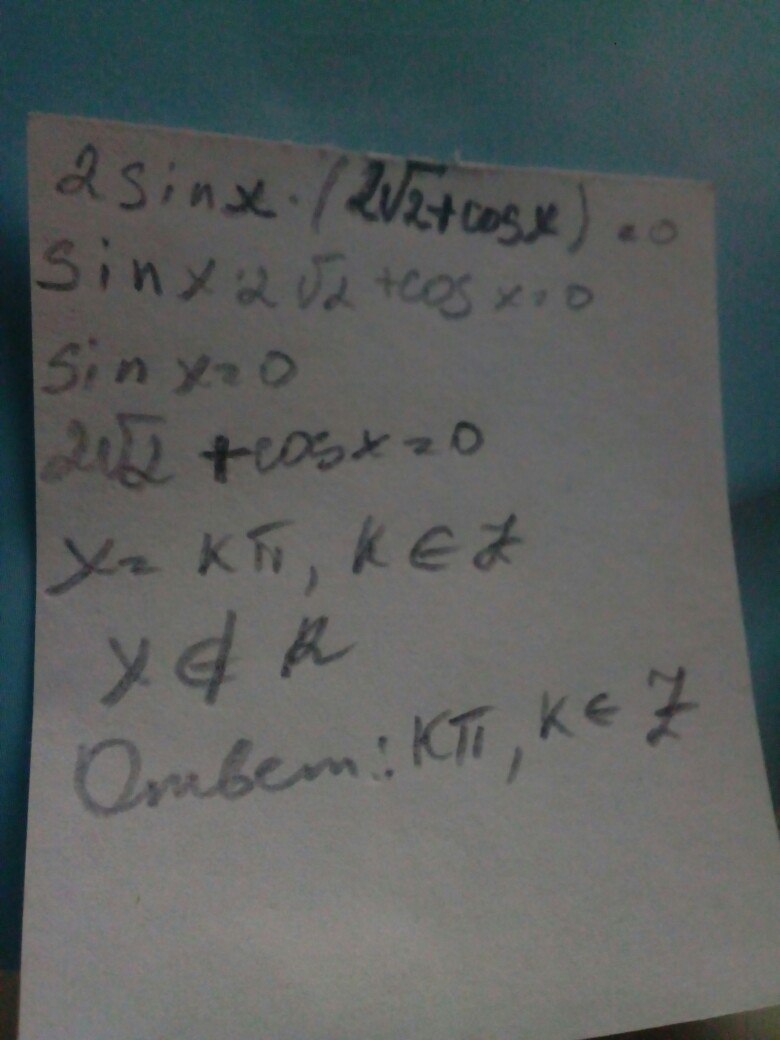 2sinx·(2√2+cosx)=0
sinx·2√2+cosx=0
sinx=0
2√2+cosx=0
x=kπ, k∈Z
x∉R
Ответ: kπ, k∈Z